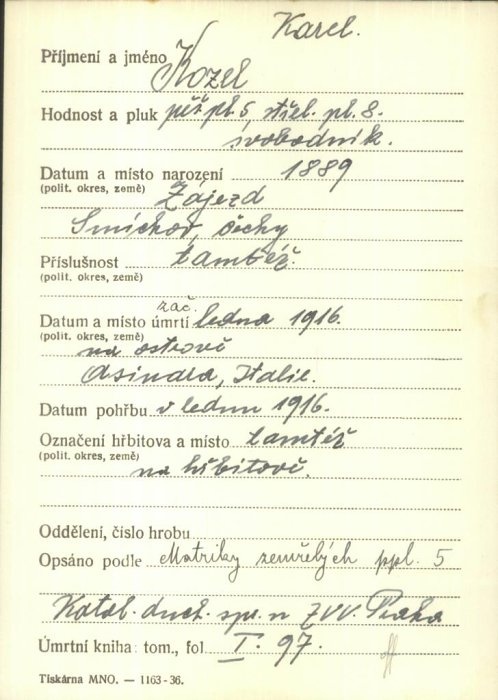 Karel.
Příjmení a jméno Kozel
Hodnost a pluk pěš. pl. 5, střel. pl. 8.
svobodník.
Datum a místo narození 1889
(polit. okres, země) Zájezd
Smíchov, Čechy
Příslušnost tamtéž.
(polit. okres, země)
zač.
Datum a místo úmrtí ledna 1916.
(polit. okres, země) na ostrově
Asinara, Italie.
Datum pohřbu v lednu 1916.
Označení hřbitova a místo tamtéž
(polit. okres, země) na hřbitově.
Oddělení, číslo hrobu
Opsáno podle Matriky zemřelých ppl. 5
Katol. duch. spr. u ZVV. Praha
Úmrtní kniha: tom., fol I. 97.
Tiskárna MNO. — 1163-36.